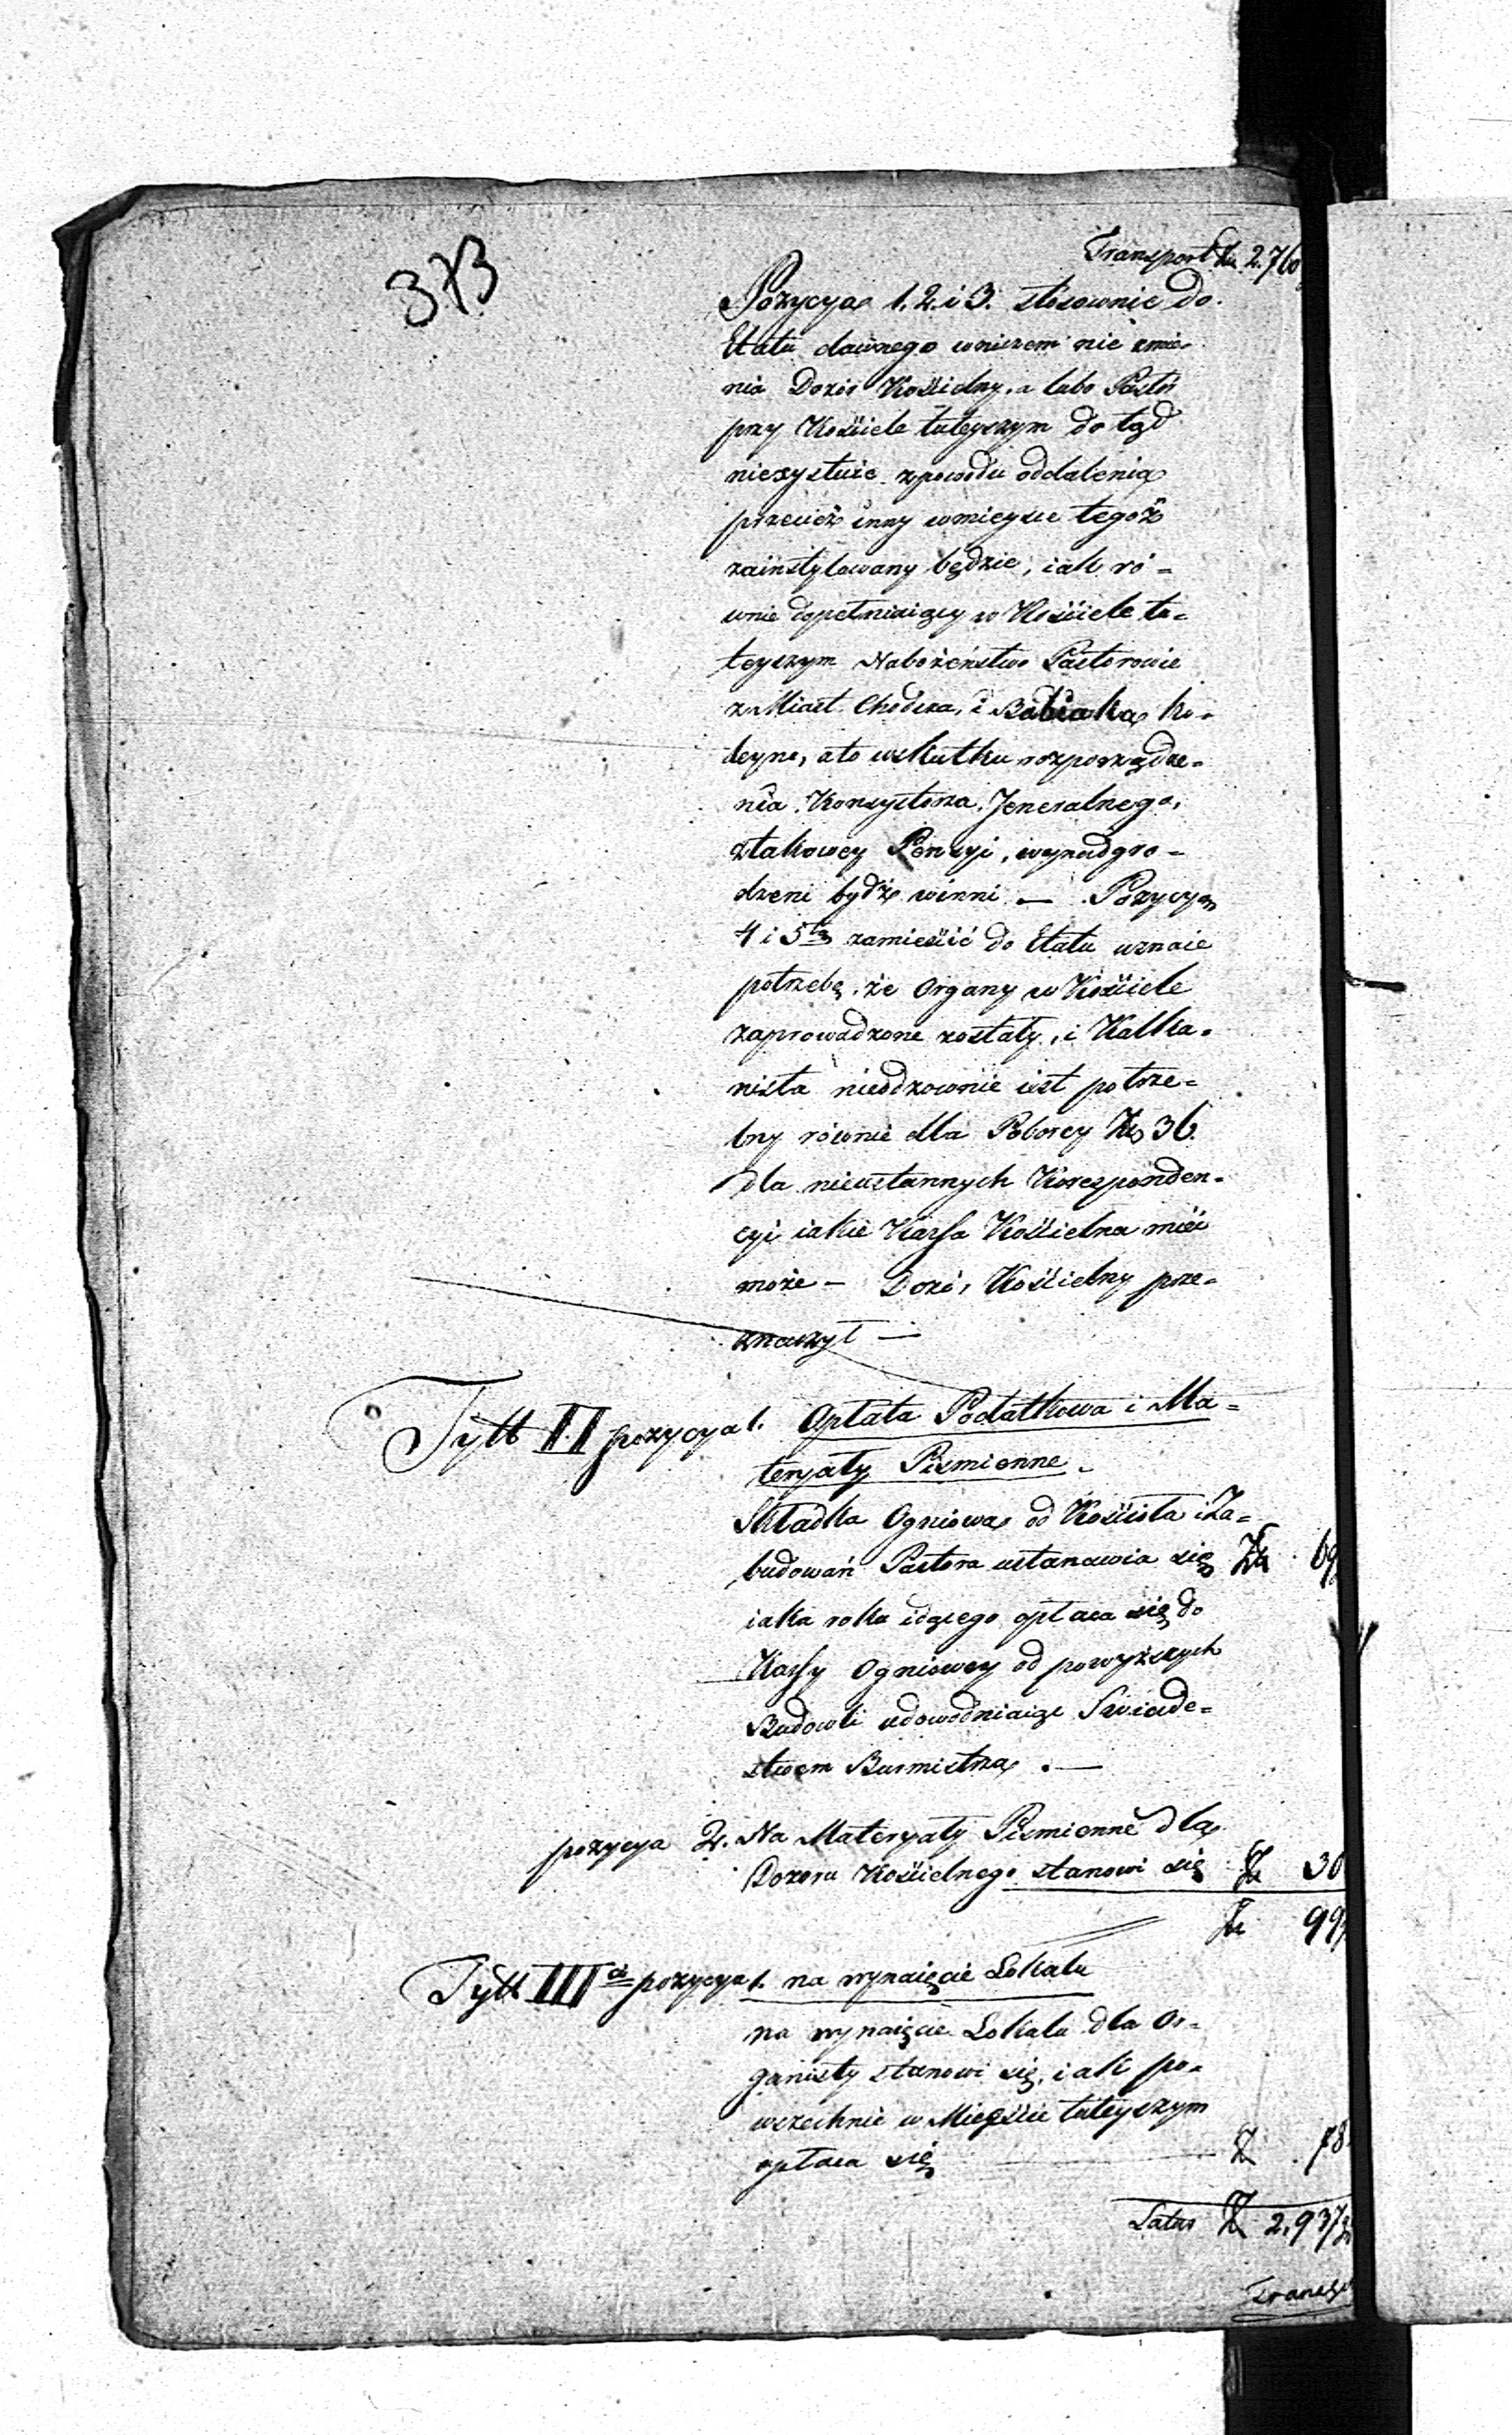 373
Transport Zł. 2.760
Pozycya 1. 2. i 3. stosownie do
Etatu dawnego wniczem nie zmie-
nia Dozór Kościelny, a lubo Pastor
przy Kościele tuteyszym do tąd
niexystuie zpowodu oddalenia
przecież inny wmieysce tegoż
zainstylowany będzie, iak ró-
wnie dopełniaiący w Kościele tu-
teyszym Nabożeństwo Pastorowie
z Miast Chodcza, i Babiaka ko-
leyno, ato wskutku rozporządze-
nia Konsystorza Jeneralnego,
ztakowey Penzyi, wynadgro-
dzeni bydź winni — Pozycya
4 i 5ta zamieścić do Etatu uznaie
potrzebę, że Organy w Kościele
zaprowadzone zostały, i Kalka-
nista nieodzownie iest potrze-
bny równie dla Poborcy Zł 36
dla nieustannych Korrespponden-
cyi iakie Kassa Kościelna mieć
może — Dozór Kościelny prze-
znaczył —
Tytł II pozycya 1. Opłata Podatkowa i Ma-
teryały Piśmienne
Składka Ogniowa od Kościoła i Za-
budowań Pastora ustanawia się Zł 69
iaka roku idącego opłaca się do
Kassy Ogniowey od powyższych
Budowli udowodniaiąc Świade-
stwem Burmistrza. —
pozycya 2. Na Materyały Piśmienne dla
Dozoru Kościelnego stanowi się Zł 30
Zł 99
Tytł III ci pozycya 1. na wynaięcie Lokalu
na wynaięcie Lokalu dla Or-
ganisty stanowi się, iak po-
wszechnie w Mieście tuteyszym
opłaca się Zł 78
Latus Zł 2,937
Transp